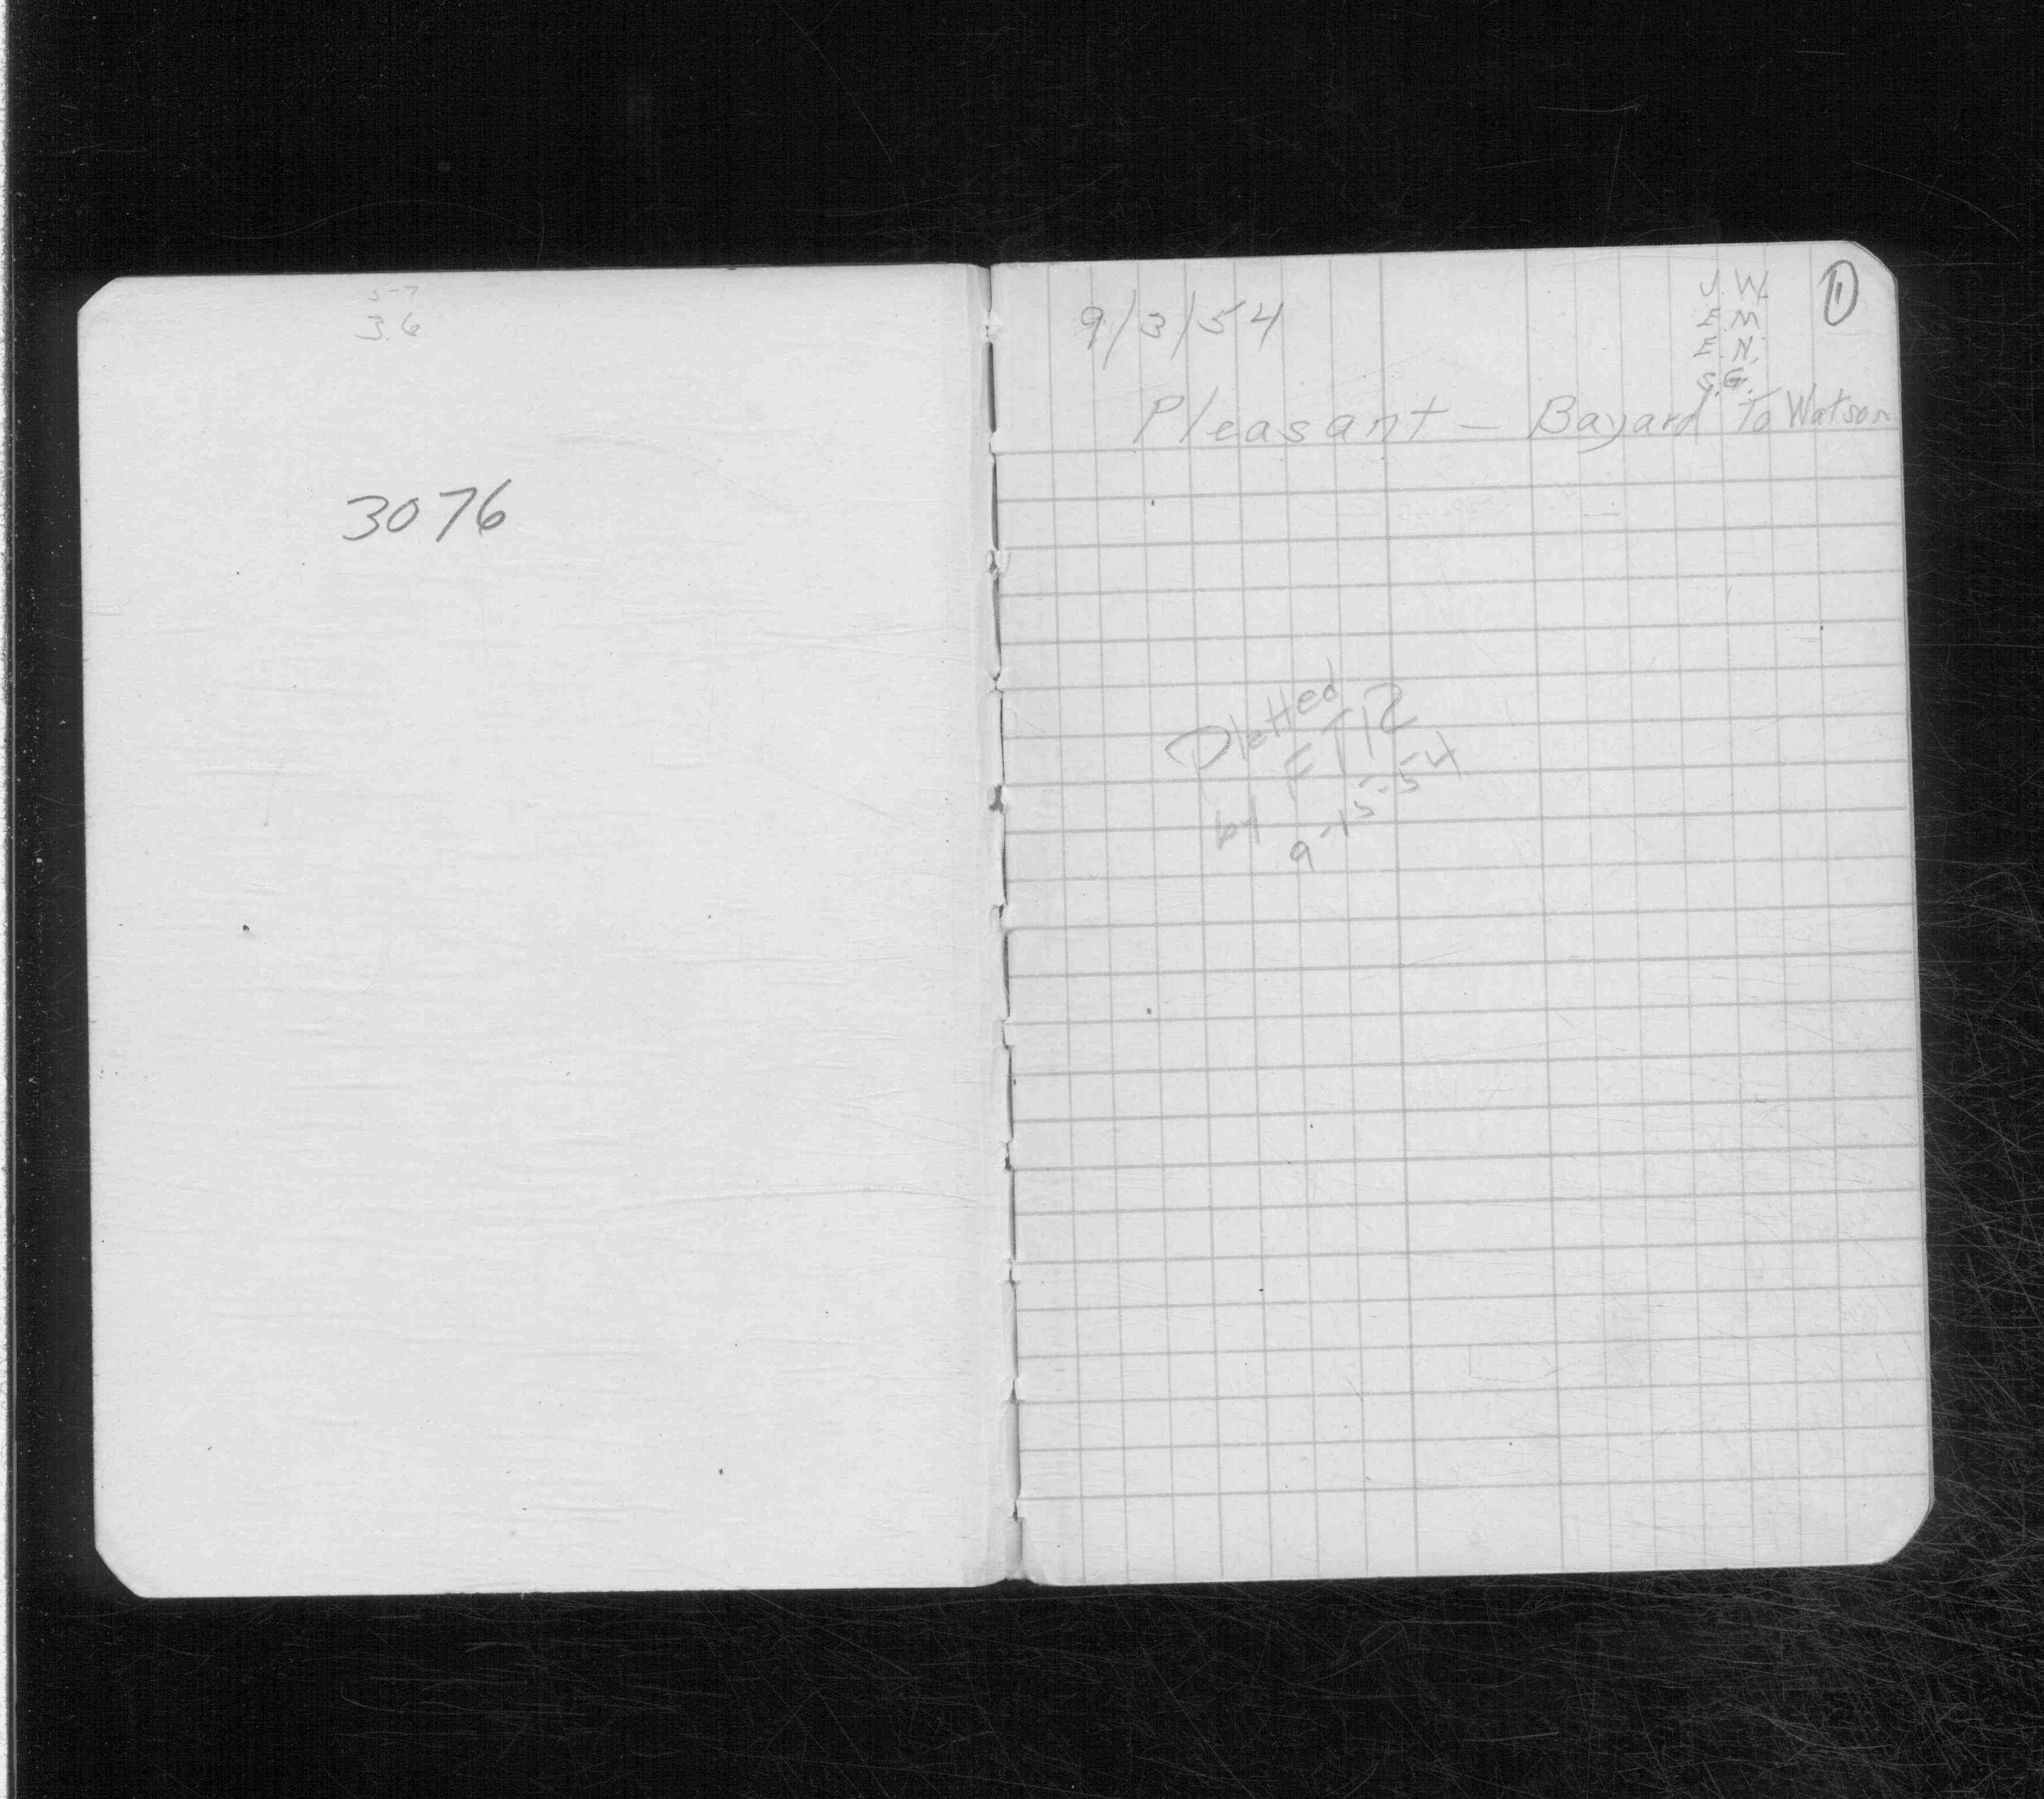 3.6
3076
9/3/54
J.W.
E.M
E.N.
S.G.
1
Pleasant - Bayard To Watson
Plotted
by
9-15-54